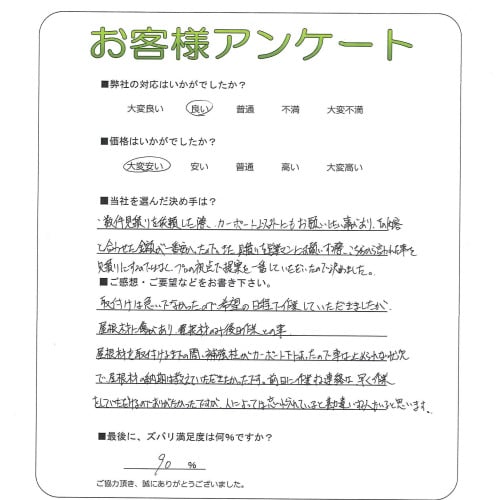 お客様アンケート
■弊社の対応はいかがでしたか?
大変良い 良い 普通 不満 大変不満
■価格はいかがでしたか?
大変安い 安い 普通 高い 大変高い
■当社を選んだ決め手は?
・数件見積りを依頼した際、カーポート以外にもお願いしたい事があり、
合わせた金額が一番安かったので。また見積りを営業マンにお願いする際、こちらから言われた事を
見積りにするのではなく、プロの視点で提案を一番していただいたので決めました。
■ご感想・ご要望などをお書き下さい。
取付けは急いでなかったので希望の日程で作業していただきましたが、
屋根材に傷があり屋根材のみ後日作業との事
屋根材を取付けるまでの間、補強柱がカーポート下にあったので車は止められない状況
で屋根材の納期は教えていただきたかったです。前日に作業の連絡は早く作業
をしていただけるのでありがたかったですが、人によっては忘れられていると勘違いする人がいると思います。
■最後に、ズバリ満足度は何%ですか?
90 %
ご協力頂き、誠にありがとうございました。